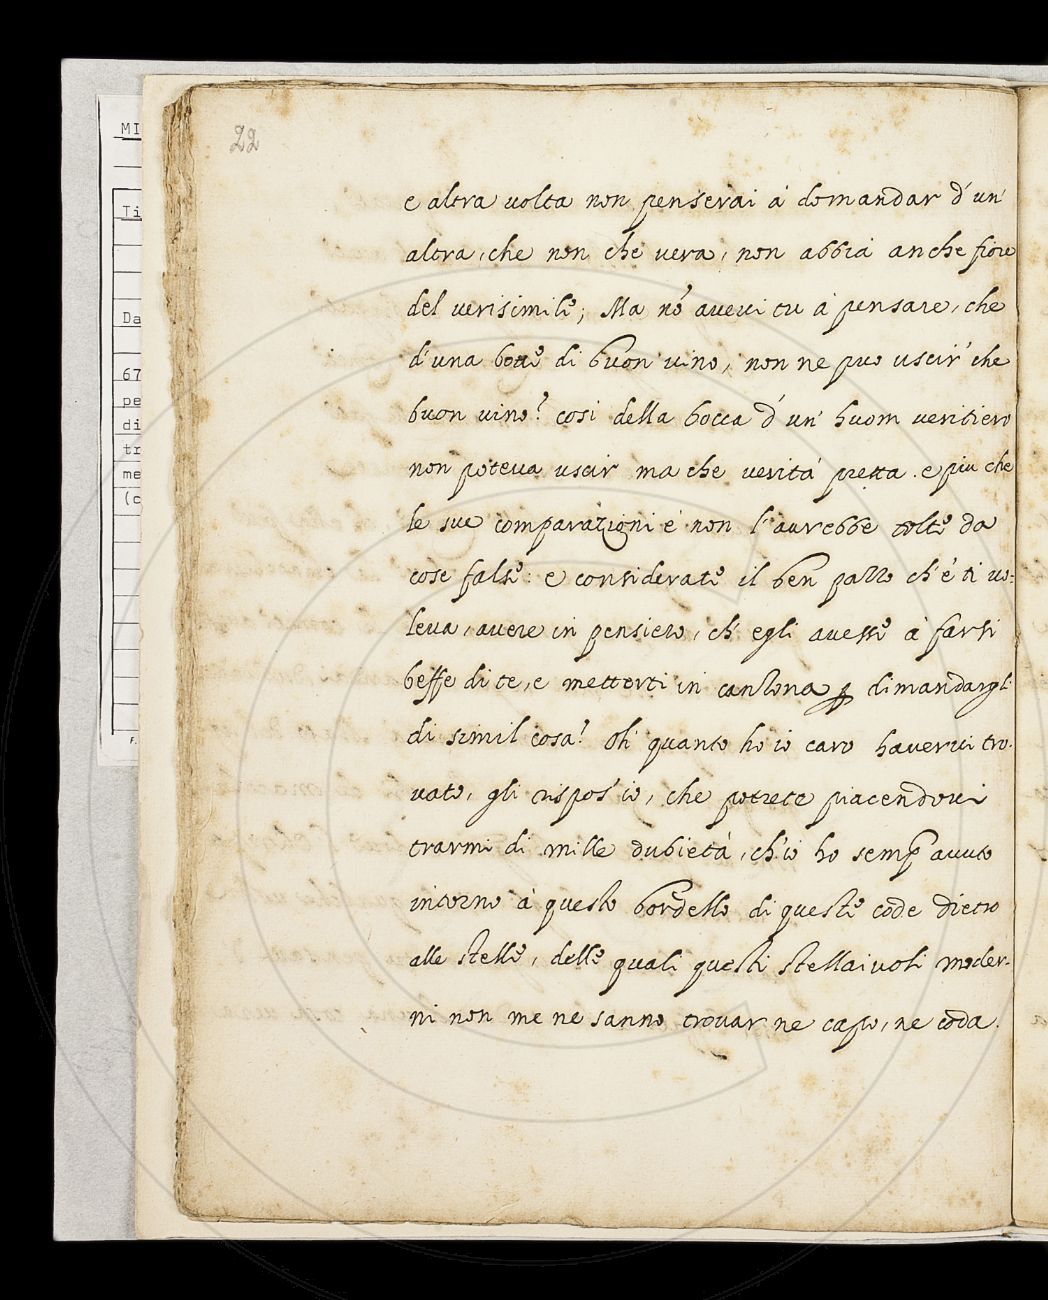 22
MI
Ti
Da
67
pe
di
tr
me
(c
e altra volta non penserai à domandar d'un'
altra, che non che vera, non abbia anche fiore
del verisimile; Ma nó avevi tu à pensare, che
d'una botte di buon vino, non ne puo uscir' che
buon vino? cosi della bocca d'un' huom veritiero
non poteva uscir ma che veritá pretta. e piu che
le sue comparazioni e' non l'aurebbe tolte da
cose false: e considerate il ben pazzo ch'é ti vo=
leva, avere in pensiero, ch'egli avesse à farsi
beffe di te, e metterti in canzona ꝑ dimandargli
di simil cosa? Oh' quanto ho io caro havervi tro-
vato, gli rispos' io, che potrete piacendovi
trarmi di mille dubietá, ch'io ho semp avuto
intorno à questo bordello di queste code dietro
alle stelle, delle quali questi stellaivoli moder-
ni non me ne sanno trovar ne capo, ne coda.